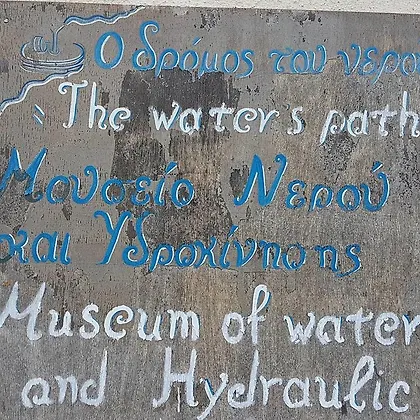 Ο δρόμος του νερο
The water's path
Μουσείο Νερού
και Υδροκίνησης
Museum of water
and Hydraulic